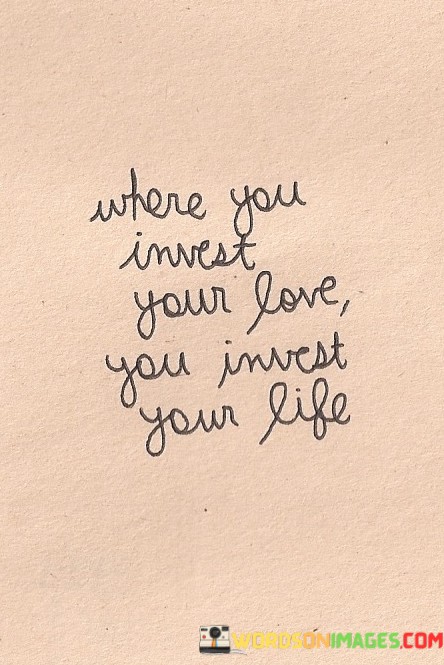 where you
invest
your love,
you invest
your life
WORDSONIMAGES.COM